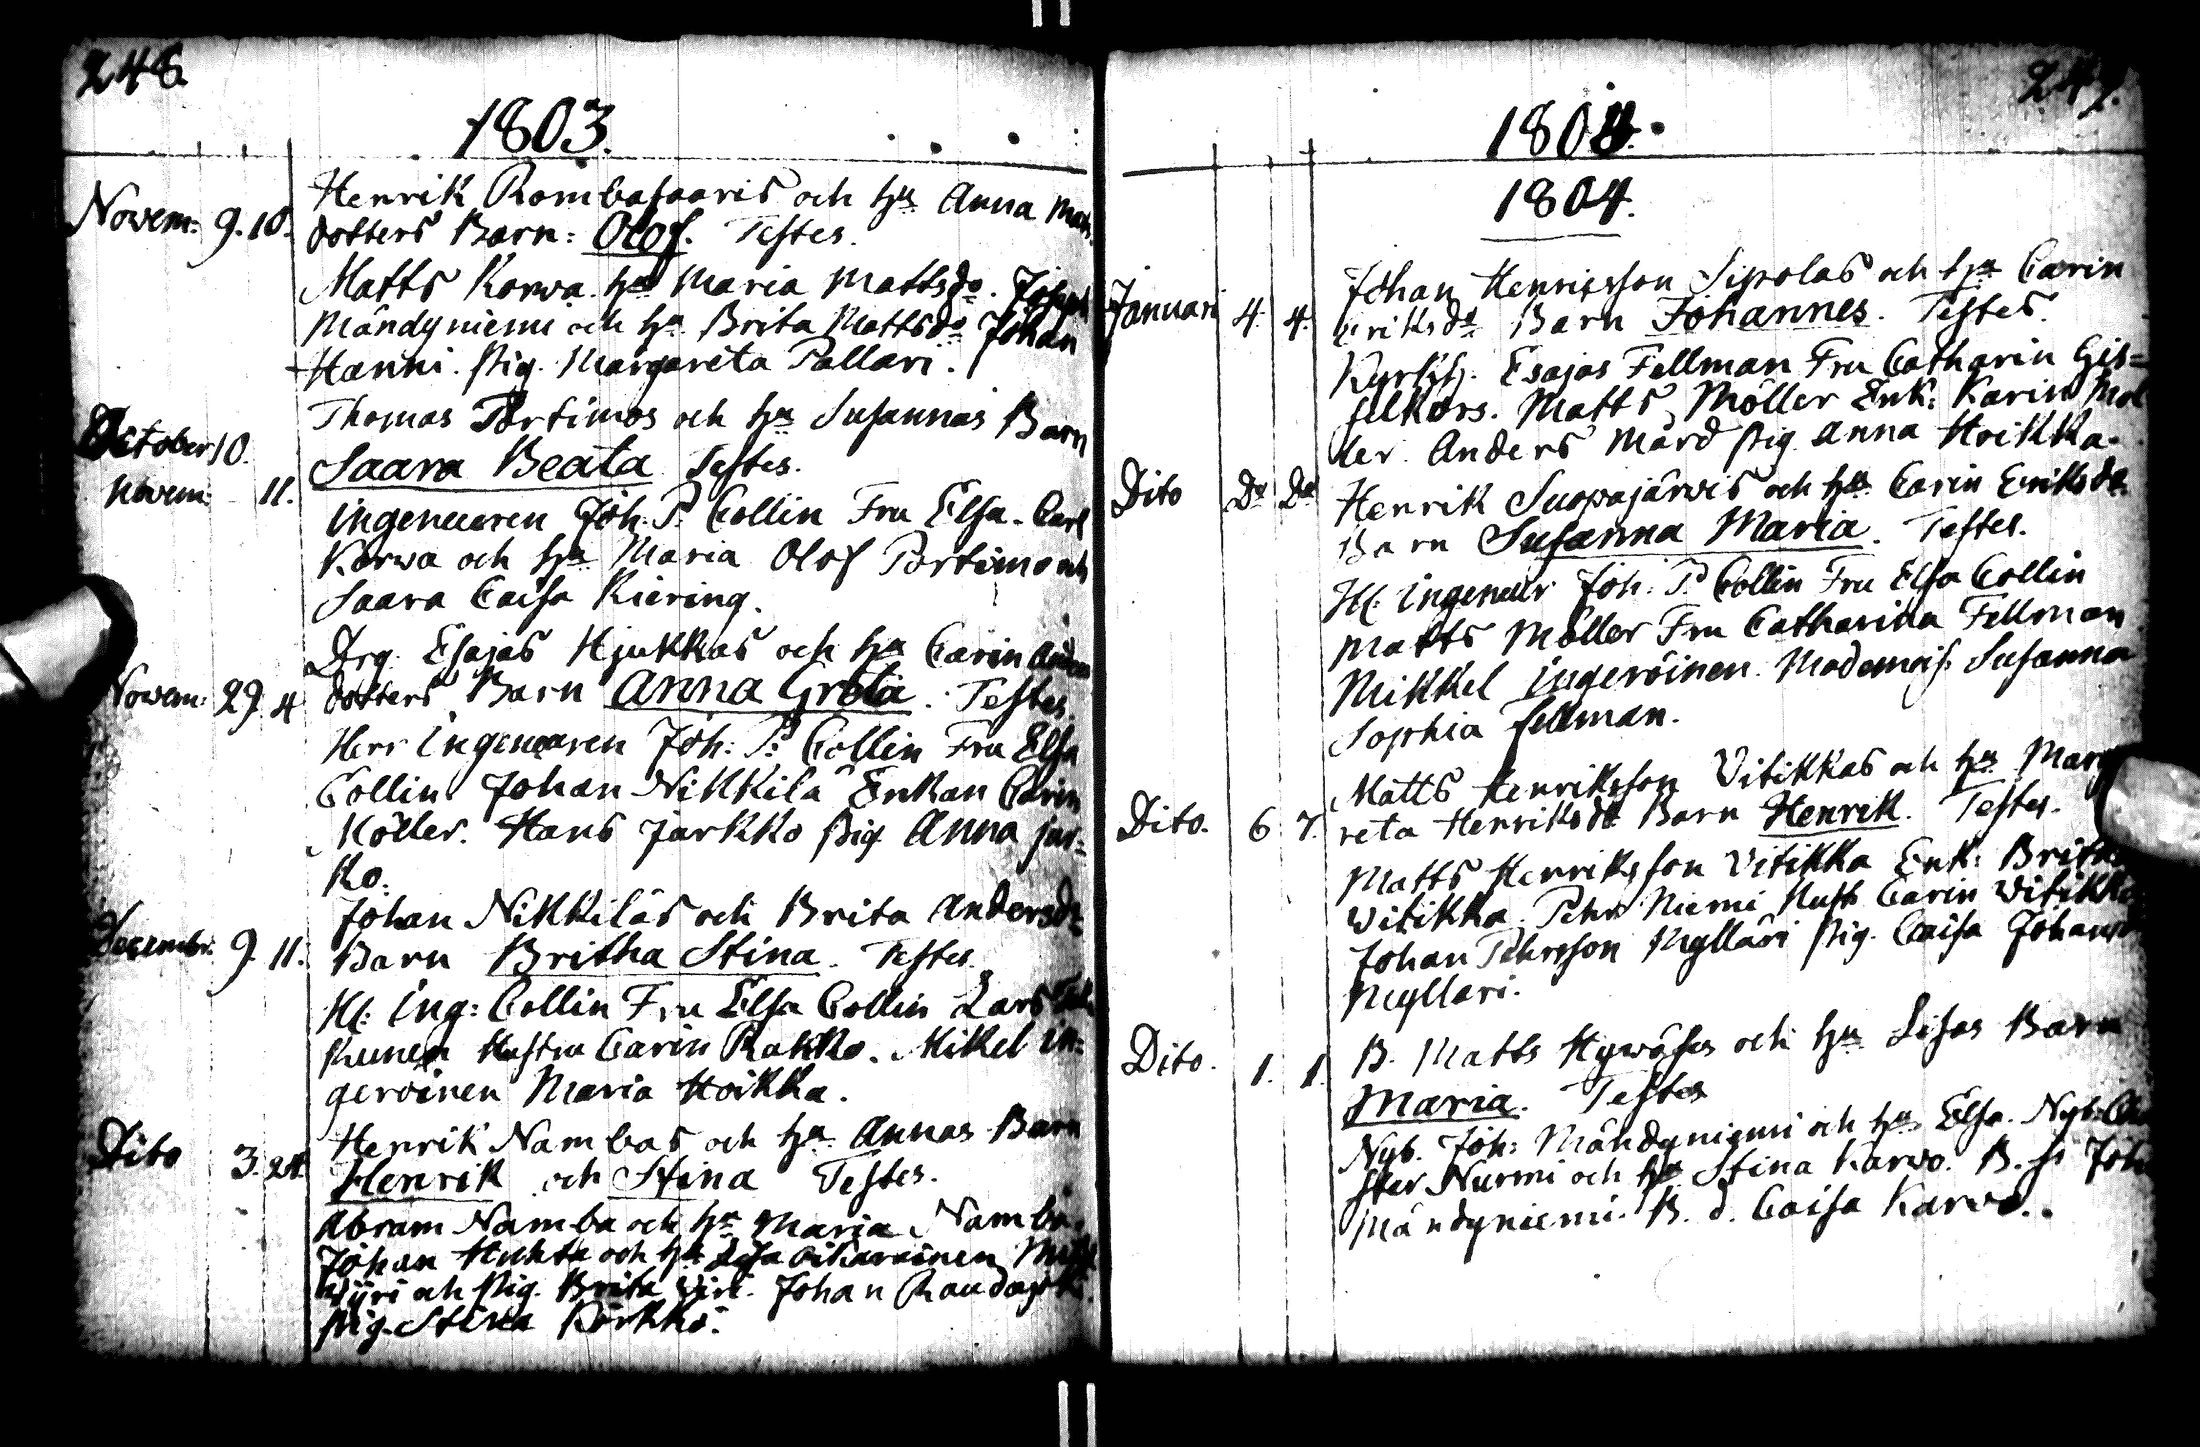 246.
1803.
Novem: 9. 10. Henrik Rombasaaris och hu Anna Matts
dotters Barn: Olof. Testes.
Matts Korwa hu Maria Mattsdo. Joseph
Mändyniemi och hu Brita Mattsdo Johan
Hanni. Pig. Margareta Pallari.
October 10. Thomas Portimos och hu Susannas Barn
Novem: 11. Saara Beata Testes.
ingeneuren Joh. P. Collin Fru Elsa. Carl
Korwa och hu Maria Olof Portimo och
Saara Caisa Kiering.
Drg. Esajas Hjukkas och hu Carin Anders
Novem: 29. 4 dotters Barn Anna Greta. Testes.
Herr ingeneuren Joh: P. Collin Fru Elsa
Collin Johan Nikkilä Enkan Carin
Möller. Hans Jarkko Pig. Anna Jar-
ko.
Johan Nikkiläs och Brita Andersdr
Decembr. 9. 11. Barn Britha Stina. Testes.
H: ing: Collin Fru Elsa Collin Lars
Hustru Carin Rakko. Mikel in-
geroinen Maria Hoikka.
Dito 3. 24. Henrik Nambas och hu Annas Barn
Henrik och Stina Testes.
Abram Namba och hu Maria Namba.
Johan Huhta och hu Lisa Oikarainen
och Pig. Brita Johan
Pig. Stina Körkkö.
247.
1803.
1804.
Johan Henricsson Sipolas och hu Carin
Januari 4. 4. Eriksdr Barn Johannes. Testes.
Kyrkh. Esajas Fellman Fru Catharin Gis-
selkors. Matts Möller Enk: Karin Möl
ler. Anders Mård Pig. Anna Hoikka.
Dito Do Do Henrik Suopajärvis och hu Carin Eriksdr
Barn Susanna Maria. Testes.
H: ingeneur Joh: P. Collin Fru Elsa Collin
Matts Möller Fru Catharina Fellman
Mikkel ingeroinen. Mademois. Susanna
Sophia Fellman.
Matts Henriksson Vitikkas och hu Marga
Dito. 6 7. reta Henriksdr Barn Henrik. Testes.
Matts Henriksson Vitikka Enk: Brita
Witikka. Pehr Niemi Hust. Carin Witikka
Johan Pehrsson Mylläri Pig. Caisa Johans
Myllari.
Dito. 1. 1. B. Matts Hywäses och hu Lisas Barn
Maria. Testes
Nyb. Joh: Mändyniemi och hu Elsa. Nyb:
ster Nurmi och hu Stina Karwo. B. s. Joh
Mändyniemi. B. d. Caisa Karwo.